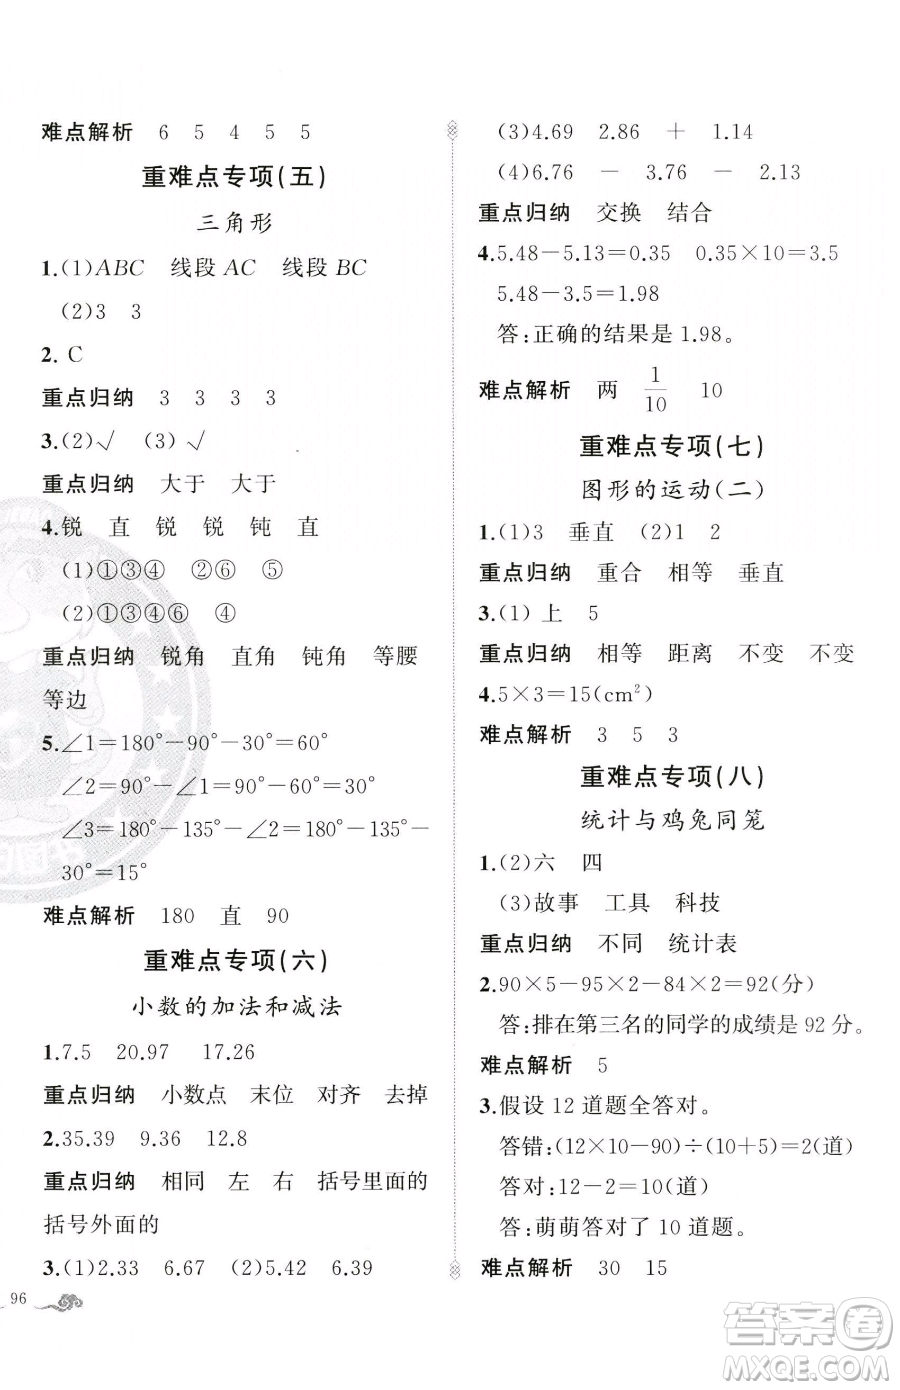 难点解析 6 5 4 5 5
重难点专项(五)
三角形
1.(1)ABC 线段 AC 线段 BC
(2)3 3
2. C
重点归纳 3 3 3 3
3.(2)√ (3)√
重点归纳 大于 大于
4.锐 直 锐 锐 钝 直
(1)①③④ ②⑥ ⑤
(2)①③④⑥ ④
重点归纳 锐角 直角 钝角 等腰
等边
5.∠1=180°－90°－30°=60°
∠2=90°－∠1=90°－60°=30°
∠3=180°－135°－∠2=180°－135°－
30°=15°
难点解析 180 直 90
重难点专项(六)
小数的加法和减法
1.7.5 20.97 17.26
重点归纳 小数点 末位 对齐 去掉
2.35.39 9.36 12.8
重点归纳 相同 左 右 括号里面的
括号外面的
3.(1)2.33 6.67 (2)5.42 6.39
96
(3)4.69 2.86 ＋ 1.14
(4)6.76 － 3.76 － 2.13
重点归纳 交换 结合
4.5.48－5.13=0.35 0.35×10=3.5
5.48－3.5=1.98
答:正确的结果是 1.98。
难点解析 两 1/10 10
重难点专项(七)
图形的运动(二)
1.(1)3 垂直 (2)1 2
重点归纳 重合 相等 垂直
3.(1)上 5
重点归纳 相等 距离 不变 不变
4.5×3=15(cm²)
难点解析 3 5 3
重难点专项(八)
统计与鸡兔同笼
1.(2)六 四
(3)故事 工具 科技
重点归纳 不同 统计表
2.90×5－95×2－84×2=92(分)
答:排在第三名的同学的成绩是 92 分。
难点解析 5
3.假设 12 道题全答对。
答错:(12×10－90)÷(10＋5)=2(道)
答对:12－2=10(道)
答:萌萌答对了 10 道题。
难点解析 30 15
答案圈
MXQE.COM